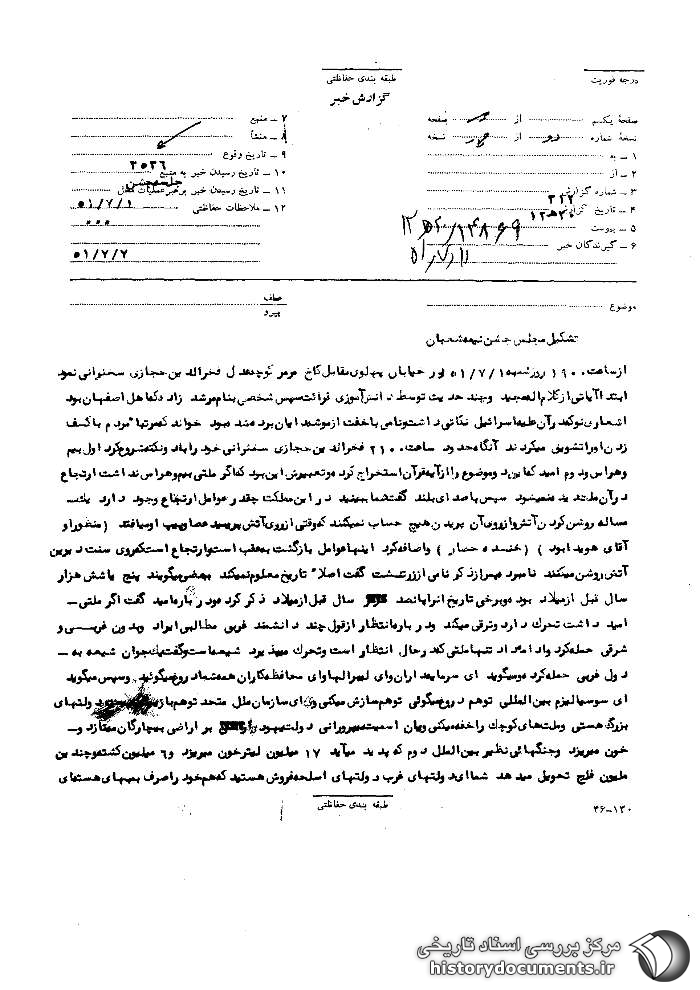 طبقه بندی حفاظتی
درجه فوریت
گزارش خبر
صفحهٔ یکم از صفحه
نسخهٔ شماره دو از چهار نسخه
۱ – به
۲ – از
۳ – شماره گزارش ۳۲۲
۴ – تاریخ گزارش
۵ – پیوست
۶ – گیرندگان خبر
۷ – منبع
۸ – منشأ
۹ – تاریخ وقوع
۱۰ – تاریخ رسیدن خبر به منبع ۲۵۳۶
۱۱ – تاریخ رسیدن خبر برهبر عملیات
۱۲ – ملاحظات حفاظتی ۵۱/۷/۱
۵۱/۷/۷
موضوع
عطف
پیرو
تشکیل مجلس جشن نیمه شعبان
از ساعت ۱۹۰ روز شنبه ۵۱/۷/۱ در خیابان پهلوی مقابل کاخ مرمر کوچه عدل فخرالدین حجازی سخنرانی نمود
ابتدا آیاتی از کلام المجید وچند حدیث توسط دانش آموزی قرائت سپس شخصی بنام مرشد زاده که اهل اصفهان بود
اشعاری نو که در آن علیه اسرائیل نکاتی داشت و نامی با خفت از موشه دایان برده شده بود خواند که مرتبا مردم با کف
زدن او را تشویق میکردند آنگاه حدود ساعت ۲۱۰ فخرالدین حجازی سخنرانی خود را با دو نکته شروع کرد اول بیم
وهراس و دوم امید که این دو موضوع را از آیه قرآن استخراج کرده و تعبیرش این بود که اگر ملتی بیم و هراس نداشت ارتجاع
در آن ملت پدید میشود سپس با صدای بلند گفت شما ببینید در این مملکت چقدر عوامل ارتجاع وجود دارد یک
مساله روشن کردن آتش و از روی آن پریدن هیچ حساب نمیکنند که وقتی از روی آتش بپرسید عصا و پیپ او میافتد (منظور او
آقای هویدا بود) (خنده حضار) و اضافه کرد اینها عوامل بازگشت بعقب است و ارتجاع است که روی سنت دیرین
آتش روشن میکنند نامبرده پس از ذکر نامی از زرتشت گفت اصلا تاریخ معلوم نمیکند بعضی میگویند پنج یا شش هزار
سال قبل از میلاد بوده و برخی تاریخ آنرا پانصد سال قبل از میلاد ذکر کرده ودر باره امید گفت اگر ملتی –
امید داشت تحرک دارد و ترقی میکند ودر باره انتظار از قول چند دانشمند غربی مطالبی ایراد وبدون غربی و
شرقی حمله کرد وادامه داد تنها ملتی که در حال انتظار است وتحرک میپذیرد شیعه است و گفت یک جوان شیعه به –
دول غربی حمله کرده و میگوید ای سرمایه داران وای لیبرالها وای محافظه کاران همه شماد روغ میگوئید وسپس میگوید
ای سوسیالیزم بین المللی توهم دروغ میگوئی توهم سازش میکنی وای سازمان ملل متحد توهم دولتهای
بزرگ هستی وملتهای کوچک را خفه میکنی و بیان اسمیت میرورانی دولت یهود بر اراضی بیچارگان میتازد و –
خون میریزد وجنگهائی نظیر بین الملل دوم که پدید میآید ۱۷ میلیون لیتر خون میریزد و ۶ میلیون کشته و چندین
ملیون فلج تحویل میدهد شما ای دولتهای غرب دولتهای اسلحه فروش هستید که هم خود را صرف بمبهای هسته ای
طبقه بندی حفاظتی
۴۶-۱۳۰
مرکز بررسی اسناد تاریخی
historydocuments.ir